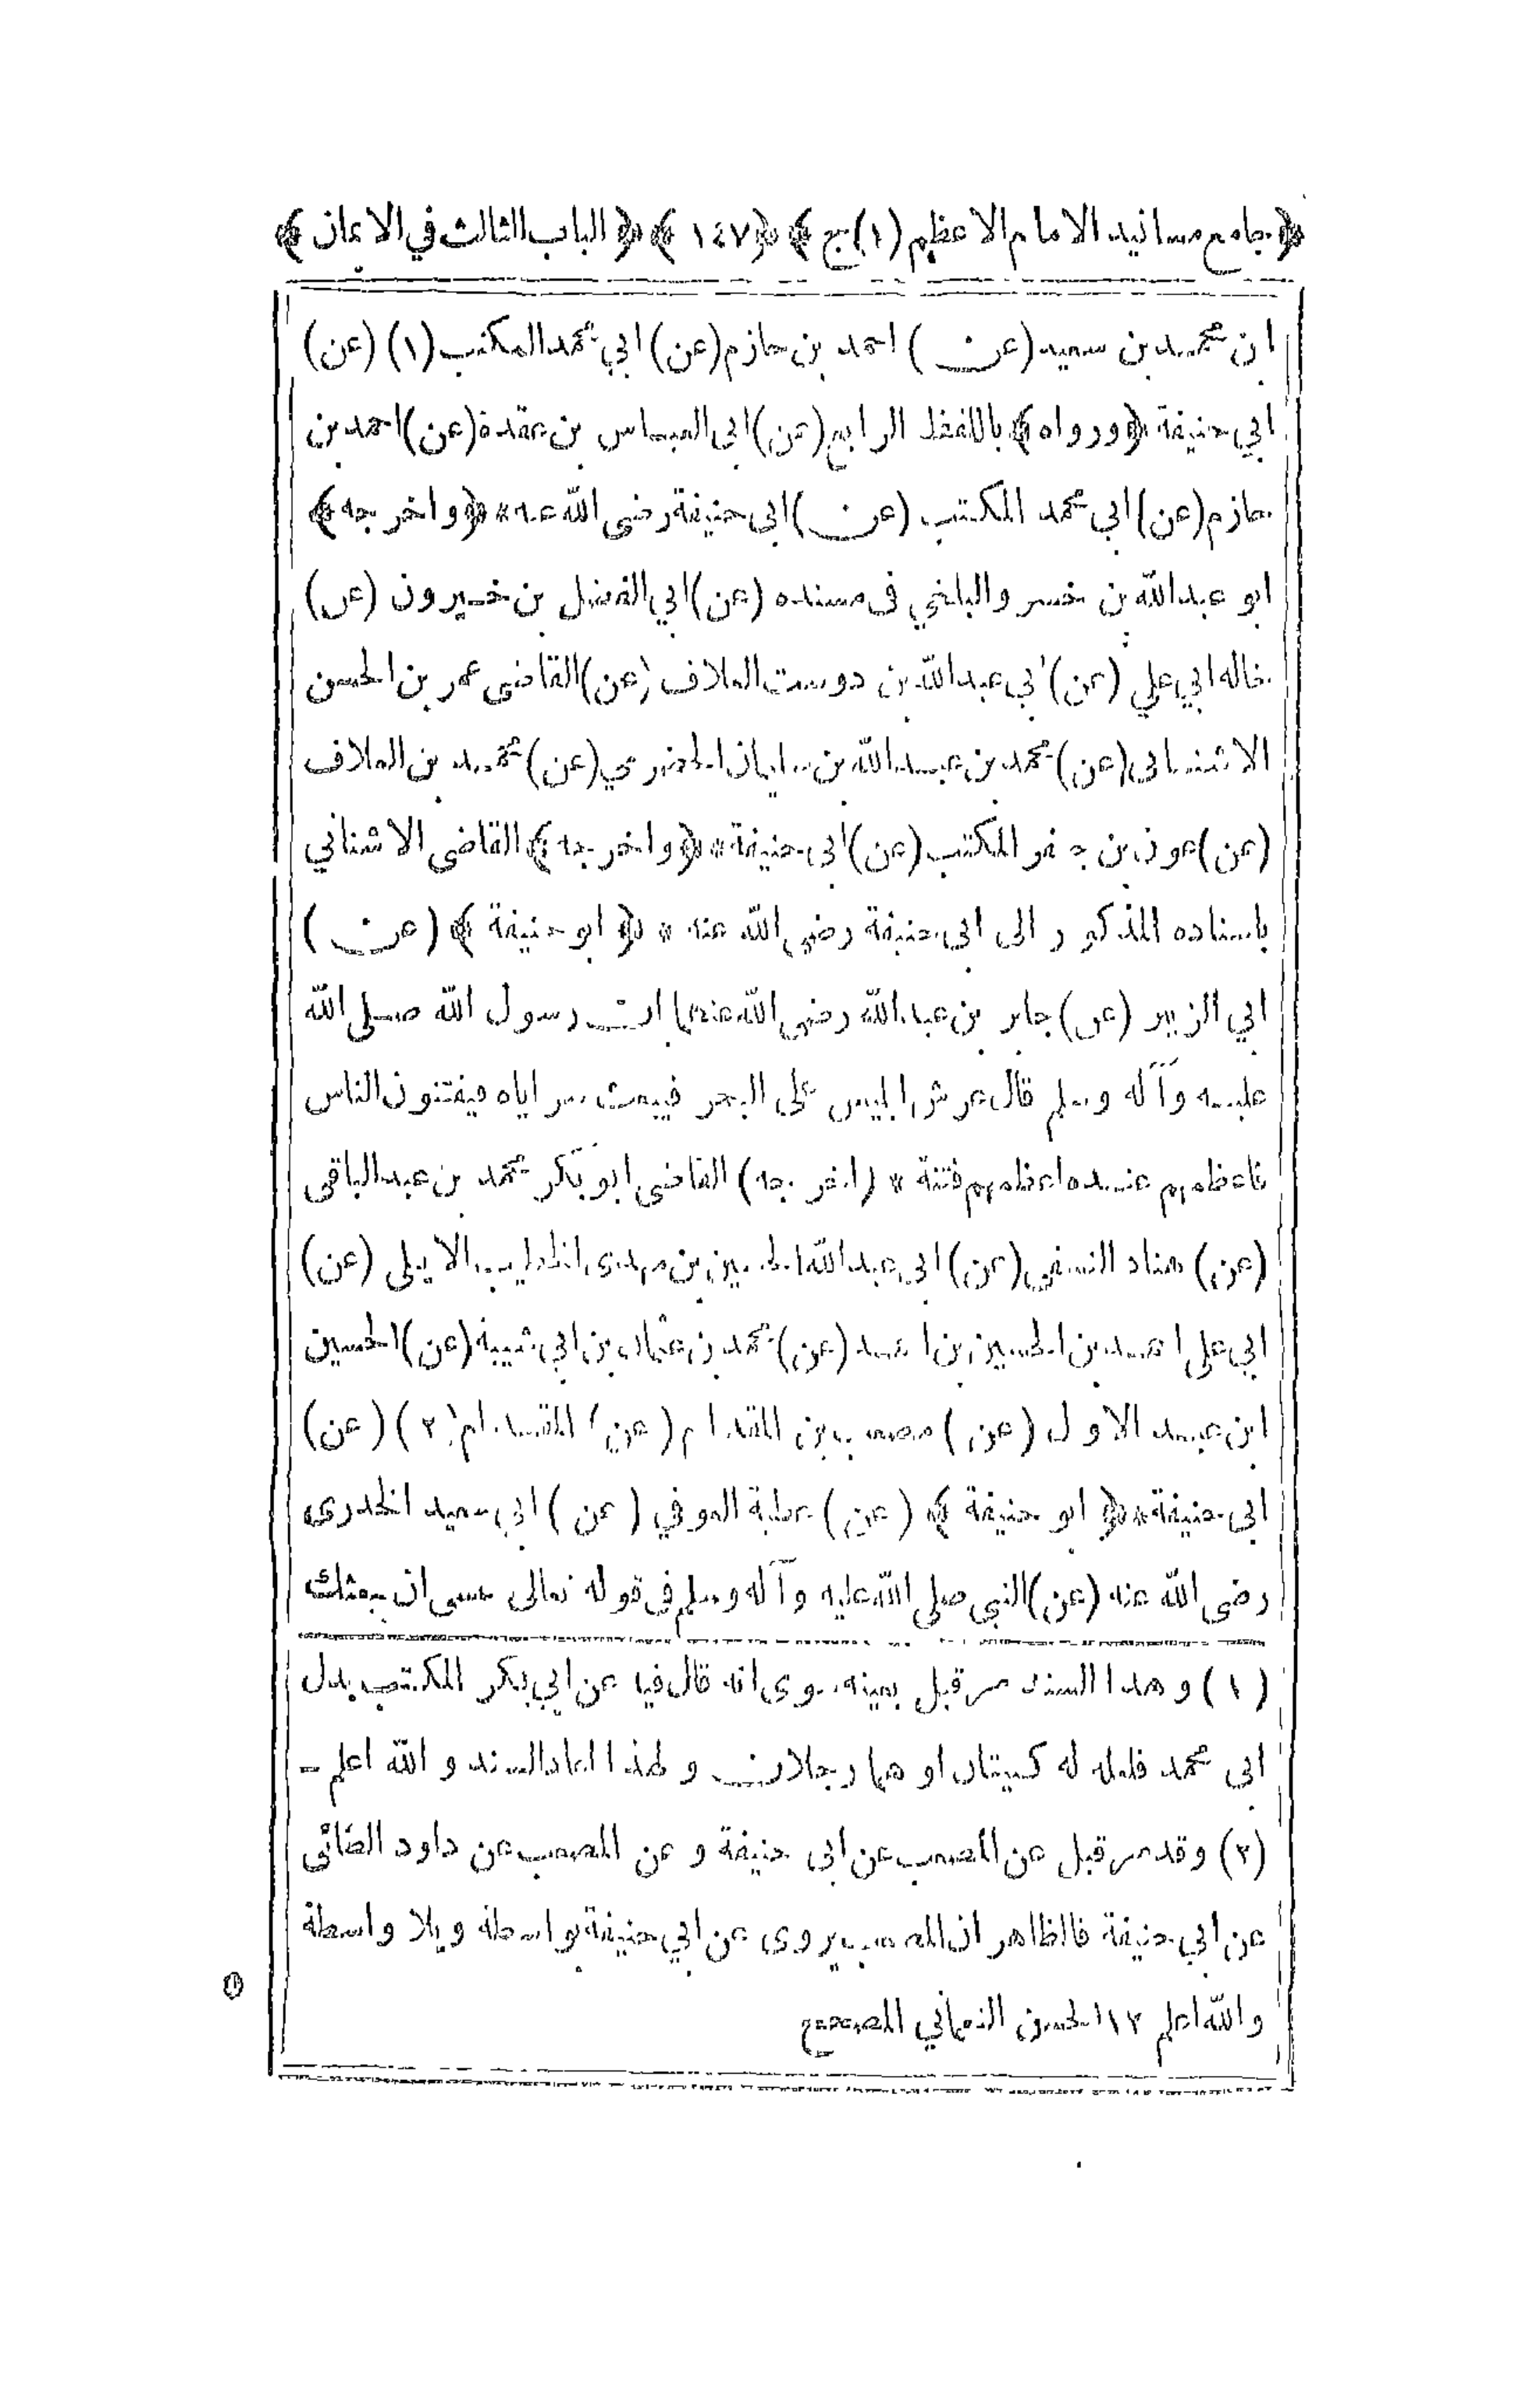 ﴿جامع مسانيد الامام الاعظم (١) ج﴾ ﴿١٤٧﴾ ﴿الباب الثالث في الايمان﴾
ابن محمد بن سعيد (عن) احمد بن حازم (عن) ابي محمد المكتب (١) (عن)
ابي حنيفة ﴿ورواه﴾ باللفظ الرابع (عن) ابى العباس بن عقدة (عن) احمد بن
حازم (عن) ابي محمد المكتب (عن) ابى حنيفة رضى الله عنه * ﴿واخرجه﴾
ابو عبدالله بن خسرو البلخي فى مسنده (عن) ابي الفضل بن خيرون (عن)
خاله ابي علي (عن) ابي عبدالله بن دوست العلاف (عن) القاضى عمر بن الحسن
الاشنانى (عن) محمد بن عبدالله بن سليمان الحضرمي (عن) محمد بن العلاف
(عن) عون بن جعفر المكتب (عن) ابى حنيفة * ﴿واخرجه﴾ القاضى الاشناني
باسناده المذكور الى ابى حنيفة رضي الله عنه * ﴿ابو حنيفة﴾ (عن)
ابي الزبير (عن) جابر بن عبدالله رضى الله عنهما ان رسول الله صلى الله
عليه وآله وسلم قال عرش ابليس على البحر فيبعث سراياه فيفتنون الناس
فاعظمهم عنده اعظمهم فتنة * (اخرجه) القاضى ابوبكر محمد بن عبدالباقى
(عن) هناد النسفى (عن) ابى عبدالله الحسين بن مهدى الخطيب الايلى (عن)
ابي على احمد بن الحسين بن احمد (عن) محمد بن عثمان بن ابى شيبة (عن) الحسين
ابن عبد الاول (عن) مصعب بن المقدام (عن) المقدام (٢) (عن)
ابى حنيفة * ﴿ابو حنيفة﴾ (عن) عطية العوفي (عن) ابى سعيد الخدرى
رضى الله عنه (عن) النبى صلى الله عليه وآله وسلم فى قوله تعالى عسى ان يبعثك
(١) وهذا السند مر قبل بعينه سوى انه قال فيه عن ابي بكر المكتب بدل
ابى محمد فلعله له كنيتان او هما رجلان ولهذا اعاد السند والله اعلم -
(٢) وقد مر قبل عن المصعب عن ابى حنيفة و عن المصعب عن داود الطائى
عن ابي حنيفة فالظاهر ان المصعب يروى عن ابي حنيفة بواسطة وبلا واسطة
والله اعلم ١٢ الحسن النعماني المصحح